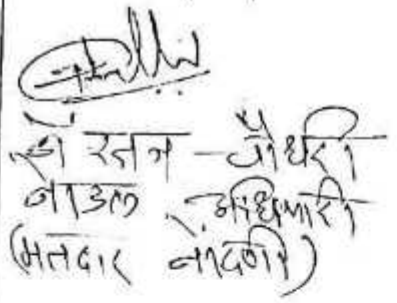 रतन चौधरी
नोडल अधिकारी
(मतदार नोंदणी)